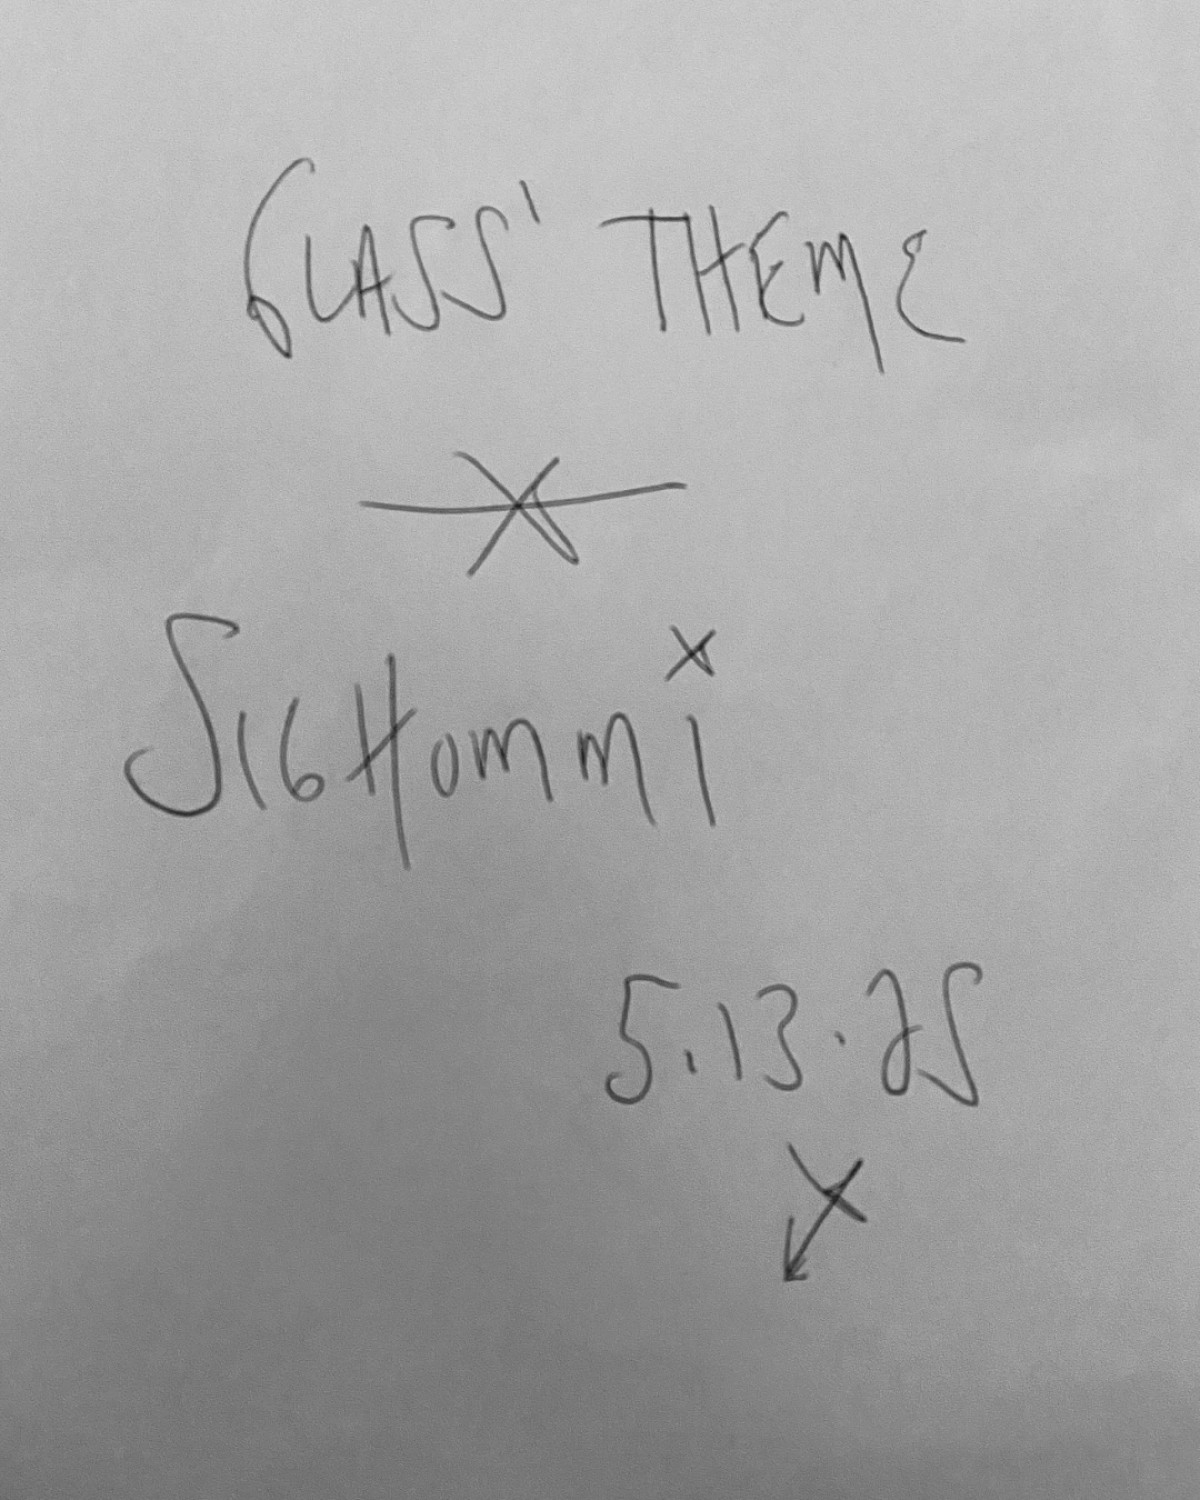 GLASS' THEME
SIGHommi
5.13.25